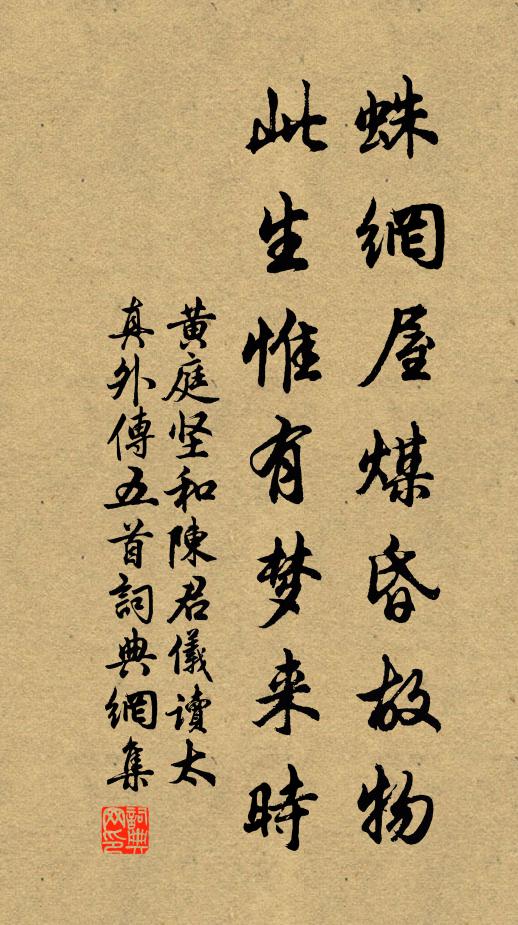 蛛網屋煤昏故物
此生惟有梦来時
黄庭坚和陳君儀讀太
真外傳五首詞典網集
詞典
网印